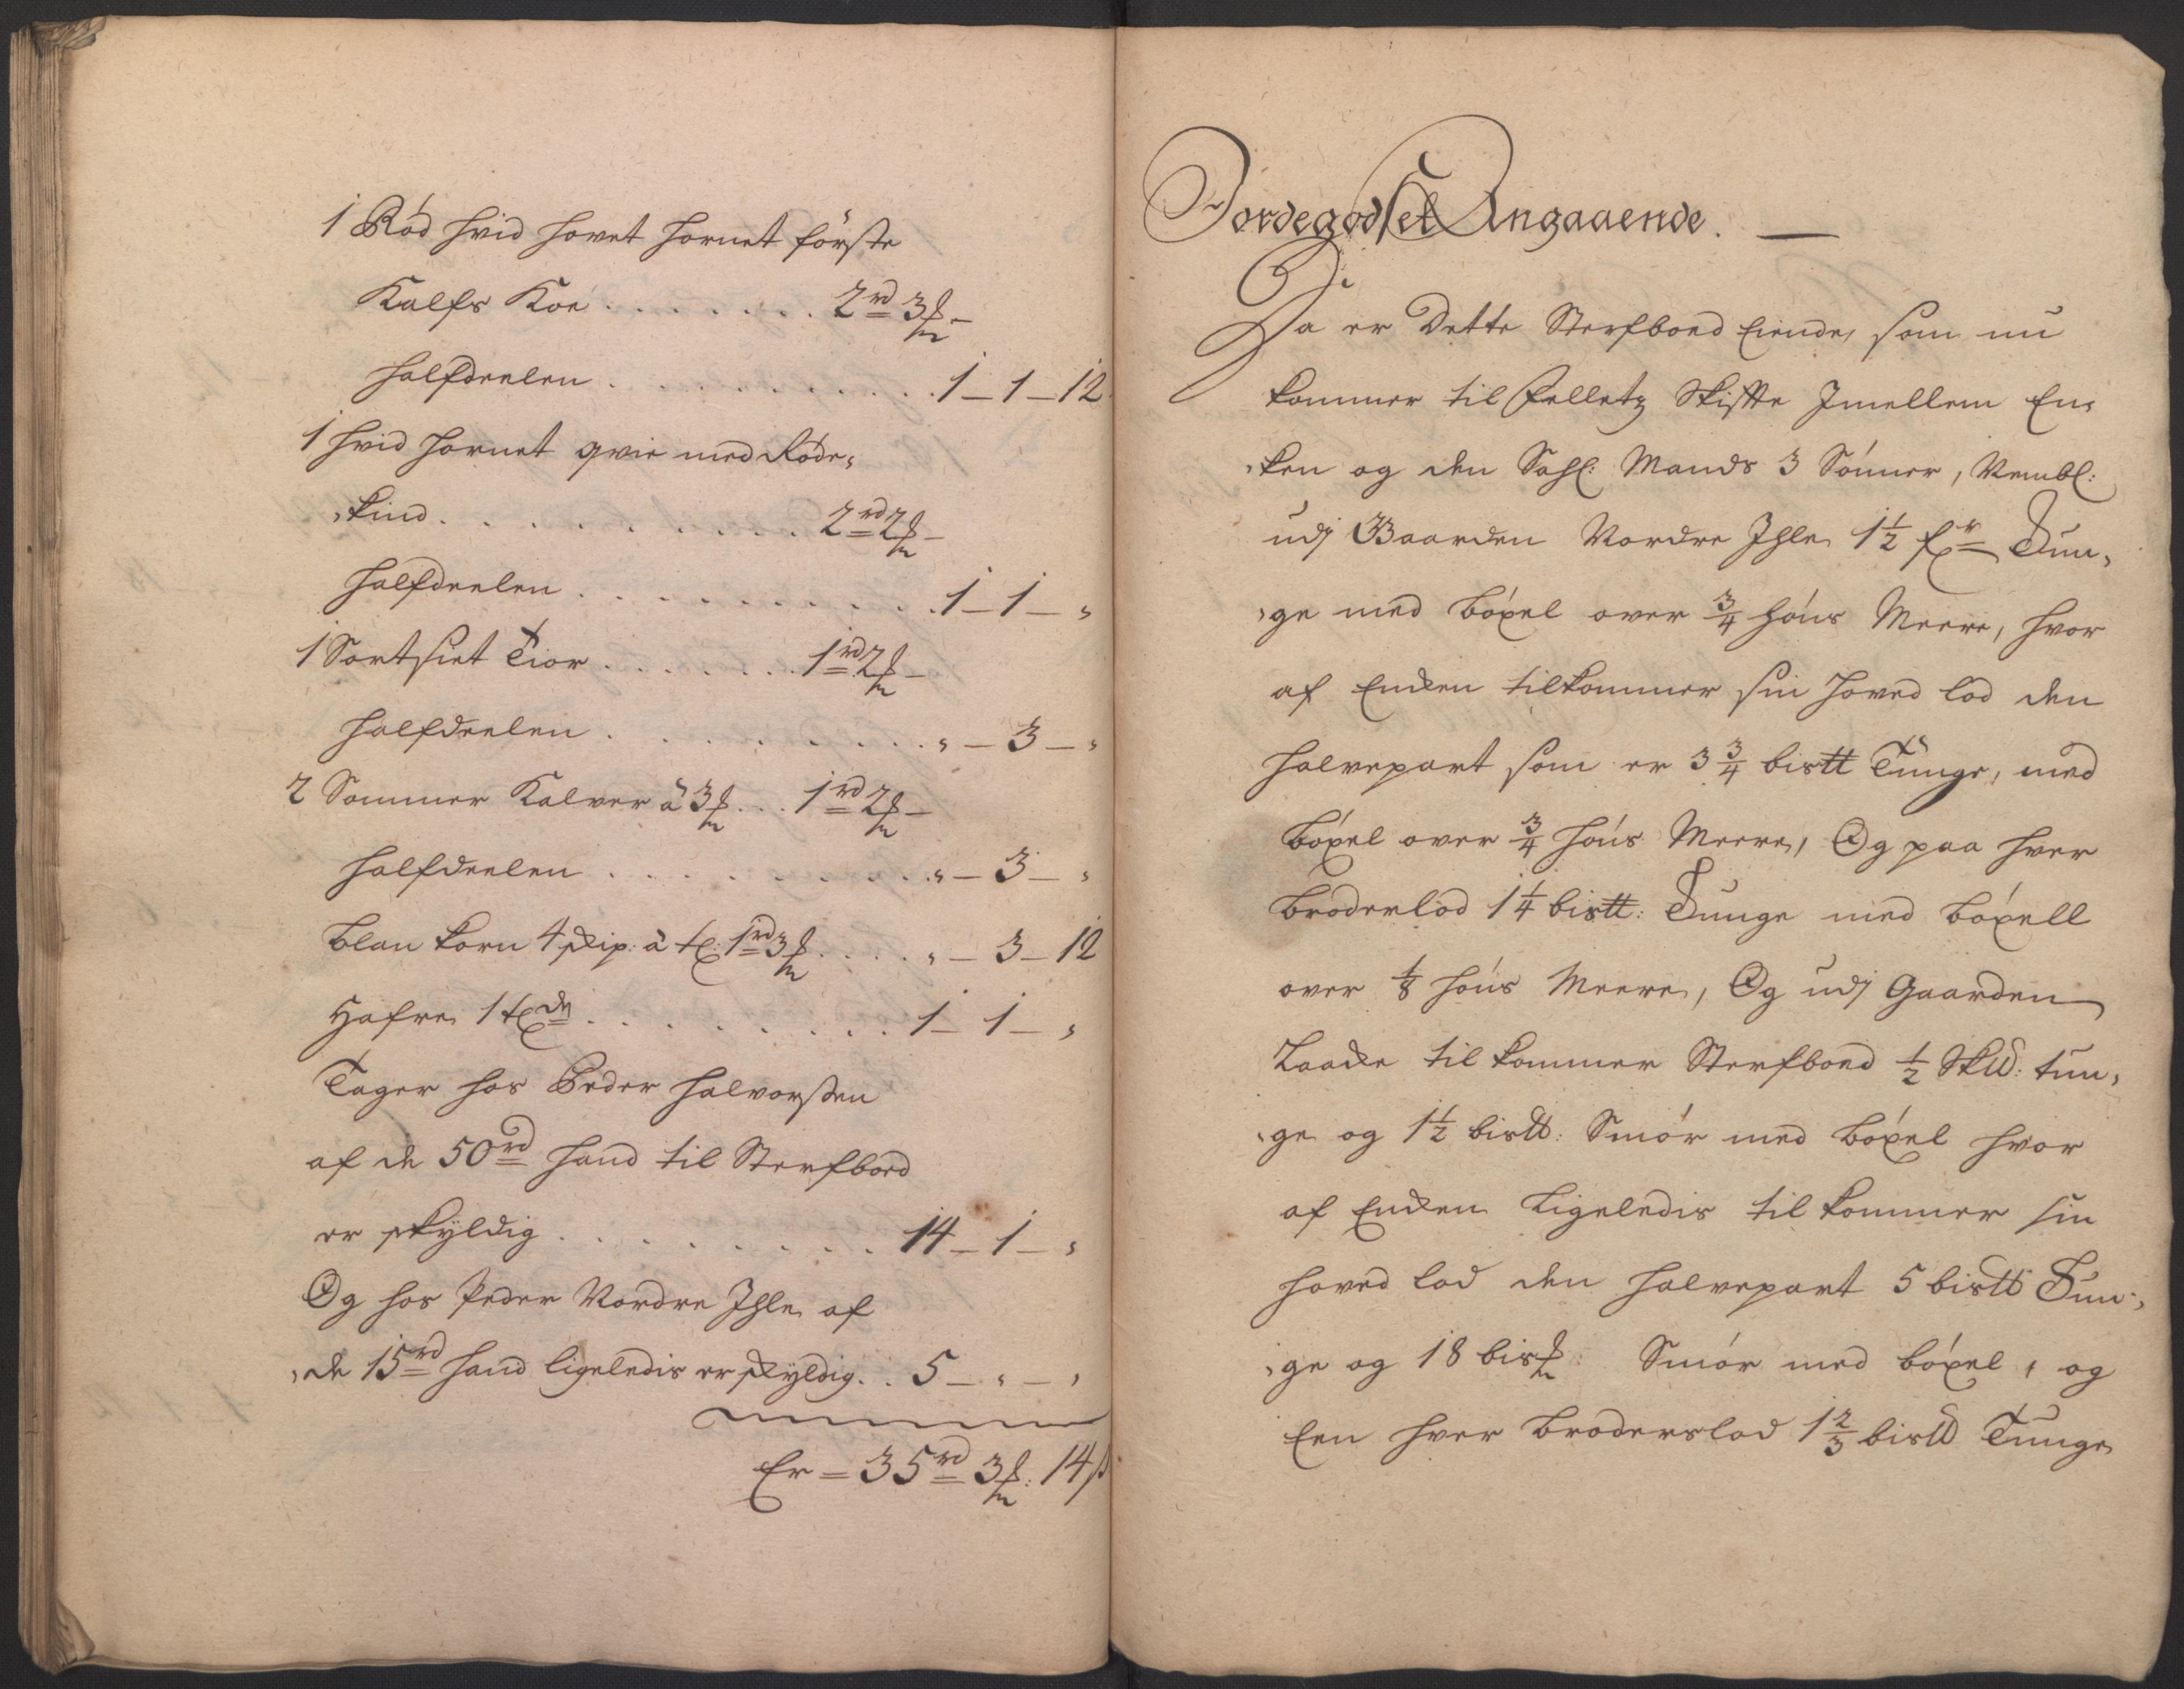 1 Rød hvid hovet hornet første
Kalfs Koe . . . . . . . 2 rd 3 ß –
halfdeelen . . . . . . . . . 1 – 1 – 12
1 hvid hornet qvie med Røde,
,kind . . . . . . . . . . 2 rd 2 ß –
halfdeelen . . . . . . . . . . 1 – 1 – „
1 Sortsiet Tior . . . . . . . 1 rd 2 ß –
halfdeelen . . . . . . . . . „ – 3 – „
2 Sommer Kalver à 3 ß . . . 1 rd 2 ß –
halfdeelen . . . . . . . . . „ – 3 – „
blan korn 4 skip: à tø: 1 rd 3 ß . . . . „ – 3 – 12
Hafre 1 tøde . . . . . . . . . 1 – 1 – „
Tager hos Peder Halvorsen
af de 50 rd hand til Sterfboed
er skÿldig . . . . . . . . . 14 – 1 – „
Og hos Peder Nordre Ihle af
,de 15 rd hand ligeledis er skÿldig . . 5 – „ – „
Er = 35 rd 3 ß: 14 s
Jordegodset Angaaende. —
Da er Dette Sterfboed Eiende, som nu
kommer til Felletz Skifte Imellem En,
,ken og den Sahl: Mands 3 Sønner, Nembl:
udj Gaarden Nordre Ihle 1 1/2 fr Tun,
,ge med bøxel over 3/4 huus Meere, hvor
af Encken tilkommer sin hoved lod den
halvepart som er 3 3/4 bistt Tunge, med
bøxel over 3/4 huus Meere, Og paa hver
broderlod 1 1/4 bistt: Tunge med bøxell
over 1/8 huus Meere, Og udj Gaarden
Laacke til kommer Sterfboed 1/2 Sk℔: tun,
,ge og 1 1/2 bis℔: Smør med bøxel hvor
af Encken Ligeledis til kommer sin
hoved lod den halvepart 5 bis℔ Tun,
,ge og 18 bis : Smør med bøxel, og
Een hver broderslod 1 2/3 bis℔ Tunge